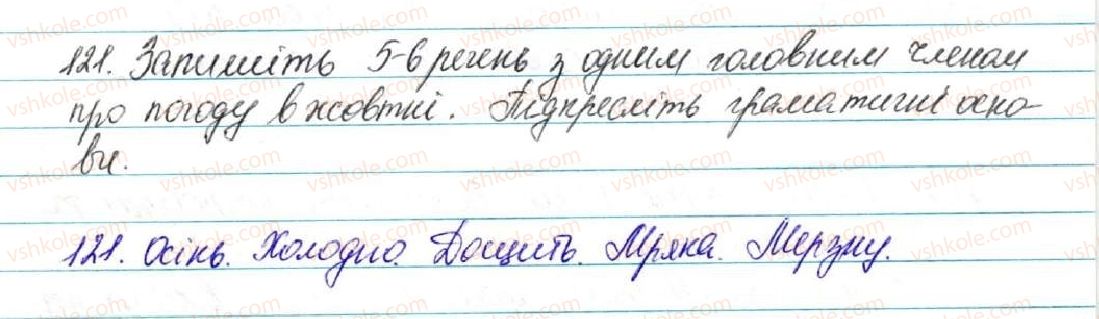 121. Запишіть 5-6 речень з одним головним членом
про погоду в жовтні. Підкресліть граматичні осно-
ви.
121. Осінь. Холодно. Дощить. Мряка. Мерзну.